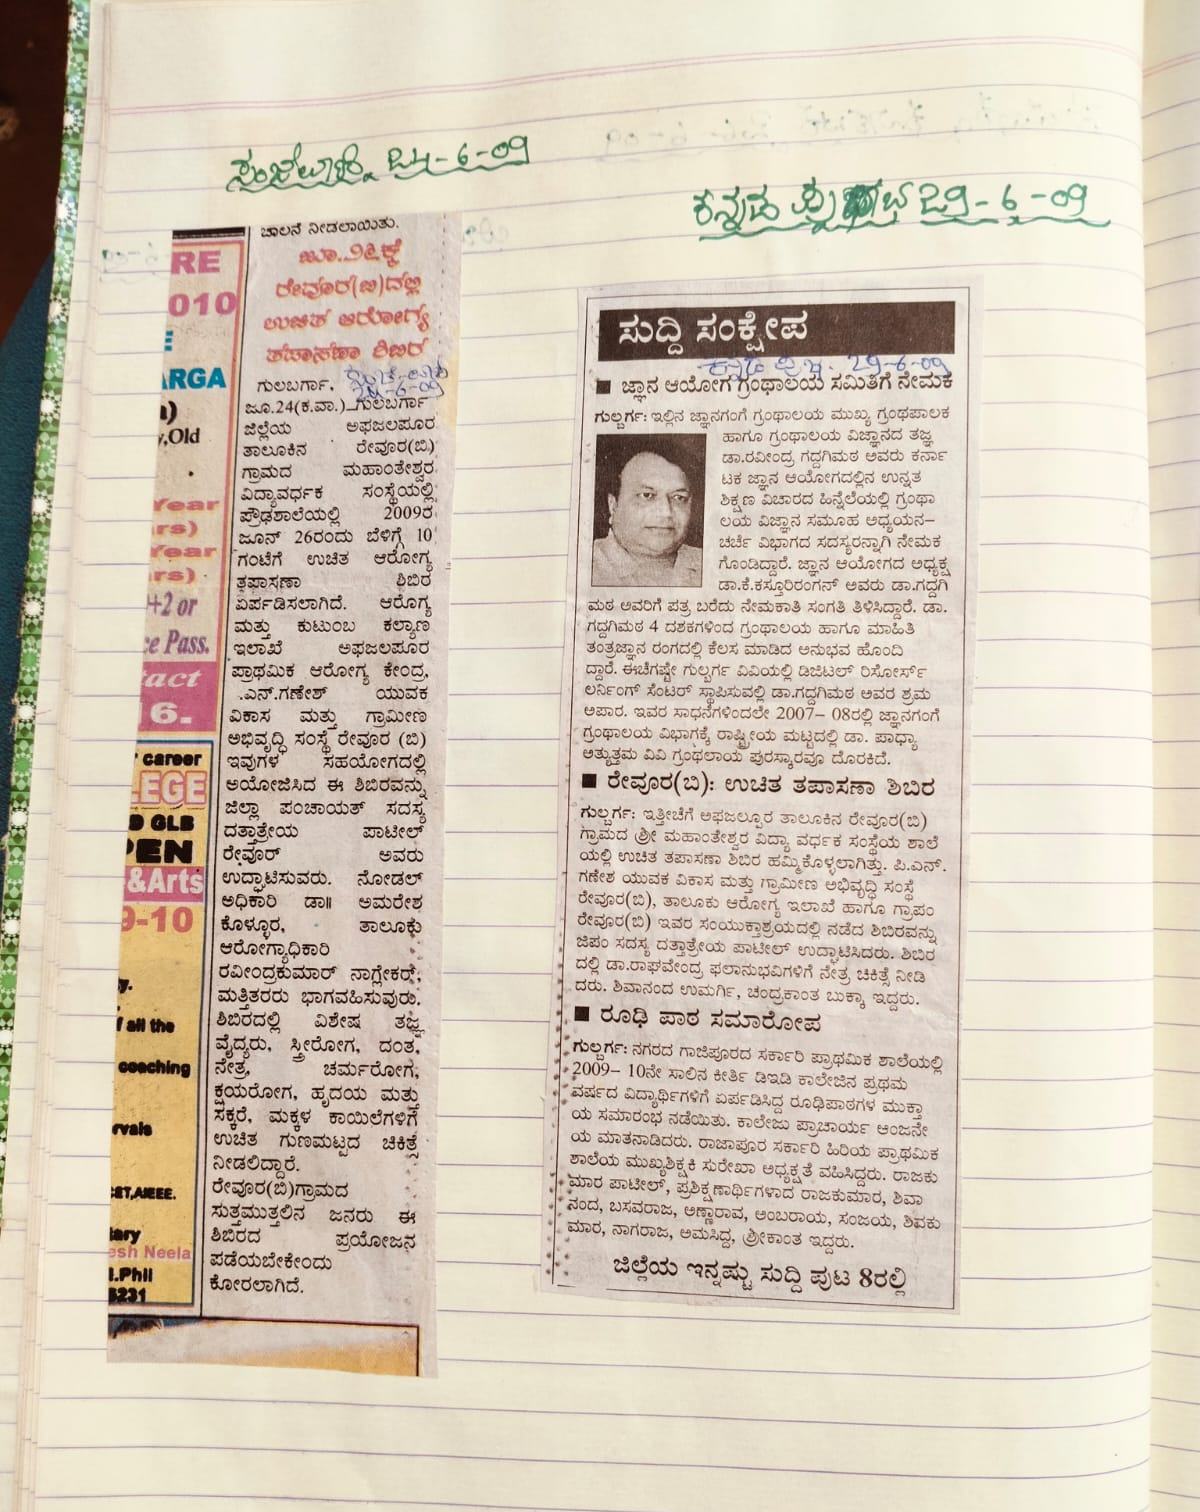 24-6-09
ಕನ್ನಡ ಪ್ರಭ 29-6-09
RE
010
E
ARGA
a)
y,Old
Year
rs)
Year
rs)
+2 or
ce Pass.
tact
16.
r career
LEGE
D GLB
PEN
&Arts
9-10
y.
f all the
coaching
rvals
CET,AIEEE.
tary
esh Neela
.Phil
8231
ಚಾಲನೆ ನೀಡಲಾಯಿತು.
ಜೂ.೨೬ಕ್ಕೆ
ರೇವೂರ(ಬಿ)ದಲ್ಲಿ
ಉಚಿತ ಆರೋಗ್ಯ
ತಪಾಸಣಾ ಶಿಬಿರ
24-6-09
ಗುಲಬರ್ಗಾ,
ಜೂ.24(ಕ.ವಾ.)_ಗುಲಬರ್ಗಾ
ಜಿಲ್ಲೆಯ ಅಫಜಲಪೂರ
ತಾಲೂಕಿನ ರೇವೂರ(ಬಿ)
ಗ್ರಾಮದ ಮಹಾಂತೇಶ್ವರ
ವಿದ್ಯಾವರ್ಧಕ ಸಂಸ್ಥೆಯಲ್ಲಿ
ಪ್ರೌಢಶಾಲೆಯಲ್ಲಿ 2009ರ
ಜೂನ್ 26ರಂದು ಬೆಳಿಗ್ಗೆ 10
ಗಂಟೆಗೆ ಉಚಿತ ಆರೋಗ್ಯ
ತಪಾಸಣಾ ಶಿಬಿರ
ಏರ್ಪಡಿಸಲಾಗಿದೆ. ಆರೊಗ್ಯ
ಮತ್ತು ಕುಟುಂಬ ಕಲ್ಯಾಣ
ಇಲಾಖೆ ಅಫಜಲಪೂರ
ಪ್ರಾಥಮಿಕ ಆರೋಗ್ಯ ಕೇಂದ್ರ,
.ಎನ್.ಗಣೇಶ್ ಯುವಕ
ವಿಕಾಸ ಮತ್ತು ಗ್ರಾಮೀಣ
ಅಭಿವೃದ್ಧಿ ಸಂಸ್ಥೆ ರೇವೂರ (ಬಿ)
ಇವುಗಳ ಸಹಯೋಗದಲ್ಲಿ
ಆಯೋಜಿಸಿದ ಈ ಶಿಬಿರವನ್ನು
ಜಿಲ್ಲಾ ಪಂಚಾಯತ್ ಸದಸ್ಯ
ದತ್ತಾತ್ರೇಯ ಪಾಟೀಲ್
ರೇವೂರ್ ಅವರು
ಉದ್ಘಾಟಿಸುವರು. ನೋಡಲ್
ಅಧಿಕಾರಿ ಡಾ॥ ಅಮರೇಶ
ಕೊಳ್ಳೂರ, ತಾಲೂಕು
ಆರೋಗ್ಯಾಧಿಕಾರಿ
ರವೀಂದ್ರಕುಮಾರ್ ನಾಗ್ಲೇಕರ್,
ಮತ್ತಿತರರು ಭಾಗವಹಿಸುವುರು.
ಶಿಬಿರದಲ್ಲಿ ವಿಶೇಷ ತಜ್ಞ
ವೈದ್ಯರು, ಸ್ತ್ರೀರೋಗ, ದಂತ,
ನೇತ್ರ, ಚರ್ಮರೋಗ,
ಕ್ಷಯರೋಗ, ಹೃದಯ ಮತ್ತು
ಸಕ್ಕರೆ, ಮಕ್ಕಳ ಕಾಯಿಲೆಗಳಿಗೆ
ಉಚಿತ ಗುಣಮಟ್ಟದ ಚಿಕಿತ್ಸೆ
ನೀಡಲಿದ್ದಾರೆ.
ರೇವೂರ(ಬಿ)ಗ್ರಾಮದ
ಸುತ್ತಮುತ್ತಲಿನ ಜನರು ಈ
ಶಿಬಿರದ ಪ್ರಯೋಜನ
ಪಡೆಯಬೇಕೇಂದು
ಕೋರಲಾಗಿದೆ.
ಸುದ್ದಿ ಸಂಕ್ಷೇಪ
ಕನ್ನಡ ಪ್ರಭ. 29-6-09
■ ಜ್ಞಾನ ಆಯೋಗ ಗ್ರಂಥಾಲಯ ಸಮಿತಿಗೆ ನೇಮಕ
ಗುಲ್ಬರ್ಗ: ಇಲ್ಲಿನ ಜ್ಞಾನಗಂಗೆ ಗ್ರಂಥಾಲಯ ಮುಖ್ಯ ಗ್ರಂಥಪಾಲಕ
ಹಾಗೂ ಗ್ರಂಥಾಲಯ ವಿಜ್ಞಾನದ ತಜ್ಞ
ಡಾ.ರವೀಂದ್ರ ಗದ್ದಗಿಮಠ ಅವರು ಕರ್ನಾ
ಟಕ ಜ್ಞಾನ ಆಯೋಗದಲ್ಲಿನ ಉನ್ನತ
ಶಿಕ್ಷಣ ವಿಚಾರದ ಹಿನ್ನೆಲೆಯಲ್ಲಿ ಗ್ರಂಥಾ
ಲಯ ವಿಜ್ಞಾನ ಸಮೂಹ ಅಧ್ಯಯನ–
ಚರ್ಚೆ ವಿಭಾಗದ ಸದಸ್ಯರನ್ನಾಗಿ ನೇಮಕ
ಗೊಂಡಿದ್ದಾರೆ. ಜ್ಞಾನ ಆಯೋಗದ ಅಧ್ಯಕ್ಷ
ಡಾ.ಕೆ.ಕಸ್ತೂರಿರಂಗನ್ ಅವರು ಡಾ.ಗದ್ದಗಿ
ಮಠ ಅವರಿಗೆ ಪತ್ರ ಬರೆದು ನೇಮಕಾತಿ ಸಂಗತಿ ತಿಳಿಸಿದ್ದಾರೆ. ಡಾ.
ಗದ್ದಗಿಮಠ 4 ದಶಕಗಳಿಂದ ಗ್ರಂಥಾಲಯ ಹಾಗೂ ಮಾಹಿತಿ
ತಂತ್ರಜ್ಞಾನ ರಂಗದಲ್ಲಿ ಕೆಲಸ ಮಾಡಿದ ಅನುಭವ ಹೊಂದಿ
ದ್ದಾರೆ. ಈಚೆಗಷ್ಟೇ ಗುಲ್ಬರ್ಗ ವಿವಿಯಲ್ಲಿ ಡಿಜಿಟಲ್ ರಿಸೋರ್ಸ್
ಲರ್ನಿಂಗ್ ಸೆಂಟರ್ ಸ್ಥಾಪಿಸುವಲ್ಲಿ ಡಾ.ಗದ್ದಗಿಮಠ ಅವರ ಶ್ರಮ
ಅಪಾರ. ಇವರ ಸಾಧನೆಗಳಿಂದಲೇ 2007– 08ರಲ್ಲಿ ಜ್ಞಾನಗಂಗೆ
ಗ್ರಂಥಾಲಯ ವಿಭಾಗಕ್ಕೆ ರಾಷ್ಟ್ರೀಯ ಮಟ್ಟದಲ್ಲಿ ಡಾ. ಪಾಧ್ಯಾ
ಅತ್ಯುತ್ತಮ ವಿವಿ ಗ್ರಂಥಲಾಯ ಪುರಸ್ಕಾರವೂ ದೊರಕಿದೆ.
■ ರೇವೂರ(ಬಿ): ಉಚಿತ ತಪಾಸಣಾ ಶಿಬಿರ
ಗುಲ್ಬರ್ಗ: ಇತ್ತೀಚೆಗೆ ಅಫಜಲ್ಪೂರ ತಾಲೂಕಿನ ರೇವೂರ(ಬಿ)
ಗ್ರಾಮದ ಶ್ರೀ ಮಹಾಂತೇಶ್ವರ ವಿದ್ಯಾ ವರ್ಧಕ ಸಂಸ್ಥೆಯ ಶಾಲೆ
ಯಲ್ಲಿ ಉಚಿತ ತಪಾಸಣಾ ಶಿಬಿರ ಹಮ್ಮಿಕೊಳ್ಳಲಾಗಿತ್ತು. ಪಿ.ಎನ್.
ಗಣೇಶ ಯುವಕ ವಿಕಾಸ ಮತ್ತು ಗ್ರಾಮೀಣ ಅಭಿವೃದ್ಧಿ ಸಂಸ್ಥೆ
ರೇವೂರ(ಬಿ), ತಾಲೂಕು ಆರೋಗ್ಯ ಇಲಾಖೆ ಹಾಗೂ ಗ್ರಾಪಂ
ರೇವೂರ(ಬಿ) ಇವರ ಸಂಯುಕ್ತಾಶ್ರಯದಲ್ಲಿ ನಡೆದ ಶಿಬಿರವನ್ನು
ಜಿಪಂ ಸದಸ್ಯ ದತ್ತಾತ್ರೇಯ ಪಾಟೀಲ್ ಉದ್ಘಾಟಿಸಿದರು. ಶಿಬಿರ
ದಲ್ಲಿ ಡಾ.ರಾಘವೇಂದ್ರ ಫಲಾನುಭವಿಗಳಿಗೆ ನೇತ್ರ ಚಿಕಿತ್ಸೆ ನೀಡಿ
ದರು. ಶಿವಾನಂದ ಉಮರ್ಗಿ, ಚಂದ್ರಕಾಂತ ಬುಕ್ಕಾ ಇದ್ದರು.
■ ರೂಢಿ ಪಾಠ ಸಮಾರೋಪ
ಗುಲ್ಬರ್ಗ: ನಗರದ ಗಾಜಿಪೂರದ ಸರ್ಕಾರಿ ಪ್ರಾಥಮಿಕ ಶಾಲೆಯಲ್ಲಿ
2009– 10ನೇ ಸಾಲಿನ ಕೀರ್ತಿ ಡಿಇಡಿ ಕಾಲೇಜಿನ ಪ್ರಥಮ
ವರ್ಷದ ವಿದ್ಯಾರ್ಥಿಗಳಿಗೆ ಏರ್ಪಡಿಸಿದ್ದ ರೂಢಿಪಾಠಗಳ ಮುಕ್ತಾ
ಯ ಸಮಾರಂಭ ನಡೆಯಿತು. ಕಾಲೇಜು ಪ್ರಾಚಾರ್ಯ ಆಂಜನೇ
ಯ ಮಾತನಾಡಿದರು. ರಾಜಾಪೂರ ಸರ್ಕಾರಿ ಹಿರಿಯ ಪ್ರಾಥಮಿಕ
ಶಾಲೆಯ ಮುಖ್ಯಶಿಕ್ಷಕಿ ಸುರೇಖಾ ಅಧ್ಯಕ್ಷತೆ ವಹಿಸಿದ್ದರು. ರಾಜಕು
ಮಾರ ಪಾಟೀಲ್, ಪ್ರಶಿಕ್ಷಣಾರ್ಥಿಗಳಾದ ರಾಜಕುಮಾರ, ಶಿವಾ
ನಂದ, ಬಸವರಾಜ, ಅಣ್ಣಾರಾವ, ಅಂಬರಾಯ, ಸಂಜಯ, ಶಿವಕು
ಮಾರ, ನಾಗರಾಜ, ಅಮಸಿದ್ದ, ಶ್ರೀಕಾಂತ ಇದ್ದರು.
ಜಿಲ್ಲೆಯ ಇನ್ನಷ್ಟು ಸುದ್ದಿ ಪುಟ 8ರಲ್ಲಿ